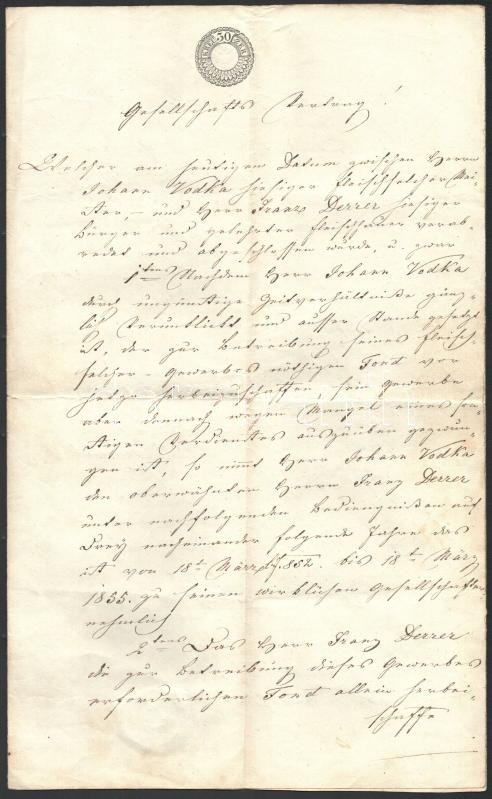 30
Gesellschafts Vertrag!
Welcher am heutigen Datum zwischen Herrn
Johann Vodka hiesiger Fleischselcher Mei-
ster, – und Herr Franz Derrer hiesiger
Bürger und gelehrter Fleischhauer verab-
redet und abgeschlossen wurde, u. zwar
1tens Nachdem Herr Johann Vodka
durch ungünstige Zeitverhältniße gänz-
lich und ausser Stande gesetzt
ist, der zur Betreibung seines Fleisch-
selcher-Gewerbes nöthigen Fond vor
herbeizuschaffen, sein Gewerbe
aber dennach wegen Mangel eines son-
stigen Verdienstes auszuüben gezwun-
gen ist, so nimt Herr Johann Vodka
den oberwähnten Herrn Franz Derrer
unter nachfolgenden Bedingnißen auf
Drey nacheinander folgende Jahre das
ist von 18t März 1852. bis 18t März
1855. zu seinen wirklichen Gesellschafter
nehmlich
2tens Das Herr Franz Derrer
die zur Betreibung dieses Gewerbes
erforderlichen Fond allein herbei-
schaffe